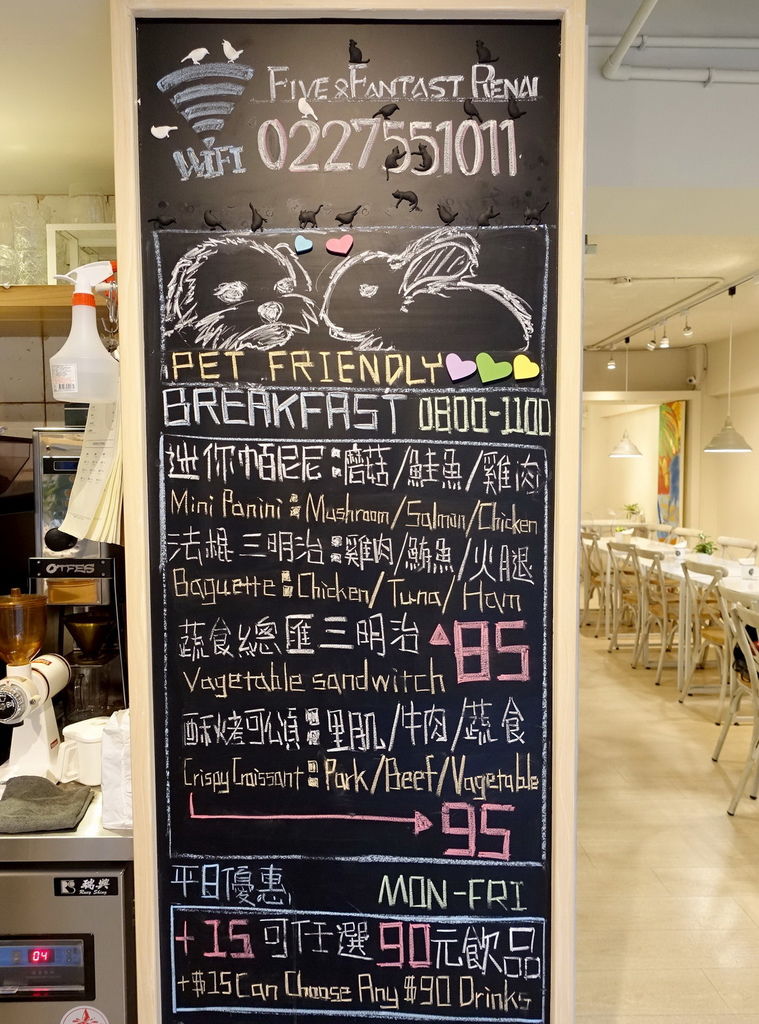 FIVE & FANTAST RENAI
WIFI
0227551011
PET FRIENDLY
BREAKFAST 0800-1100
迷你帕尼尼:蘑菇/鮭魚/雞肉
Mini Panini: Mushroom/Salmon/Chicken
法棍三明治:雞肉/鮪魚/火腿
Baguette: Chicken/Tuna/Ham
蔬食總匯三明治 85
Vagetable sandwitch
酥烤可頌:里肌/牛肉/蔬食
Crispy Craissant: Park/Beef/Vagetable
95
平日優惠 MON-FRI
+15可任選90元飲品
+$15 Can Choose Any $90 Drinks
OTFES
瑞興
Ruey Shing
04